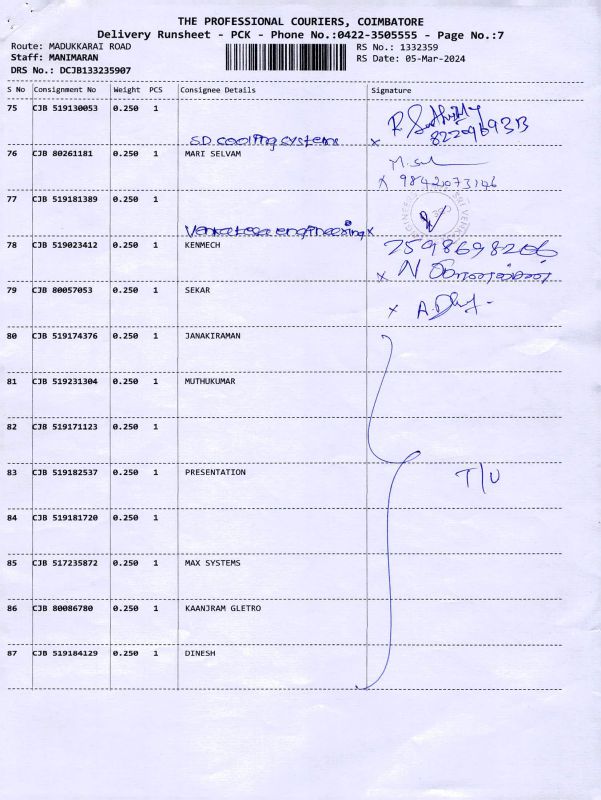 THE PROFESSIONAL COURIERS, COIMBATORE
Delivery Runsheet - PCK - Phone No.:0422-3505555 - Page No.:7
Route: MADUKKARAI ROAD RS No.: 1332359
Staff: MANIMARAN RS Date: 05-Mar-2024
DRS No.: DCJB133235907
S No Consignment No Weight PCS Consignee Details Signature
75 CJB 519130053 0.250 1
S.D. cooling systems x 8220969313
76 CJB 80261181 0.250 1 MARI SELVAM
x 9842073146
77 CJB 519181389 0.250 1
Venkatesa engineering x
78 CJB 519023412 0.250 1 KENMECH 7598698206
x N
79 CJB 80057053 0.250 1 SEKAR
x A.
80 CJB 519174376 0.250 1 JANAKIRAMAN
81 CJB 519231304 0.250 1 MUTHUKUMAR
82 CJB 519171123 0.250 1
83 CJB 519182537 0.250 1 PRESENTATION T/U
84 CJB 519181720 0.250 1
85 CJB 517235872 0.250 1 MAX SYSTEMS
86 CJB 80086780 0.250 1 KAANJRAM GLETRO
87 CJB 519184129 0.250 1 DINESH